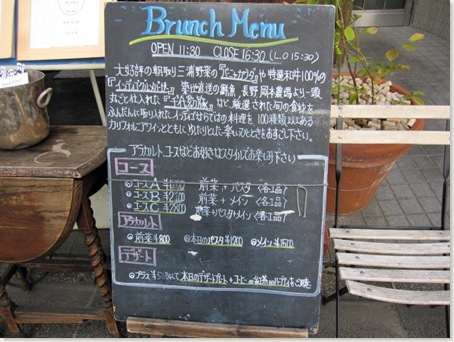 Brunch Menu
OPEN 11:30 CLOSE 16:30 (L.O 15:30)
大好評の朝取り三浦野菜の『バーニャカウダ』や特選和牛100%の
築地直送の鮮魚、長野岡本農場より一頭
丸ごと仕入れた など、厳選された旬の食材を
ふんだんに取り入れた ならではの料理を100種類以上ある
カリフォルニアワインとともに、ゆったりとした楽しいひとときをおすごし下さい。
アラカルト、コースはとお好きなスタイルでお楽しみ下さい
コース
コースA 前菜+パスタ (各1品)
コースB ¥2,100 前菜+メイン (各1品)
コースC ¥2,800 前菜+パスタ+メイン (各1品)
アラカルト
前菜¥800 本日のパスタ¥1200 メイン¥1500
デザート
プラス¥500にて本日のデザートプレート+コーヒーor紅茶